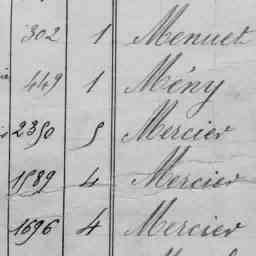 302 1 Menuet
449 1 Mény
2350 5 Mercier
1589 4 Mercier
1696 4 Mercier